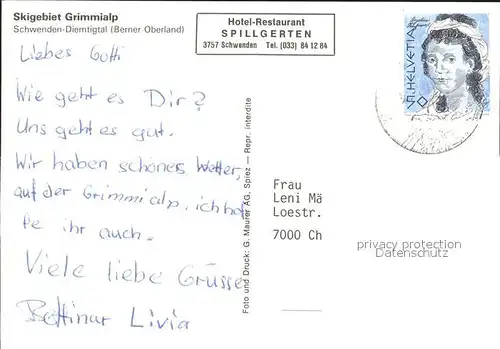 Skigebiet Grimmialp
Schwenden-Diemtigtal (Berner Oberland)
Hotel-Restaurant
SPILLGERTEN
3757 Schwenden Tel. (033) 84 12 84
HELVETIA
Liebes Gotti
Wie geht es Dir?
Uns geht es gut.
Wir haben schönes Wetter,
auf der Grimmialp. ich hof
fe ihr auch.
Viele liebe Grüsse
Bettina Livia
Foto und Druck: G. Maurer AG, Spiez — Repr. interdite
Frau
Leni Mä
Loestr.
7000 Ch
privacy protection
Datenschutz